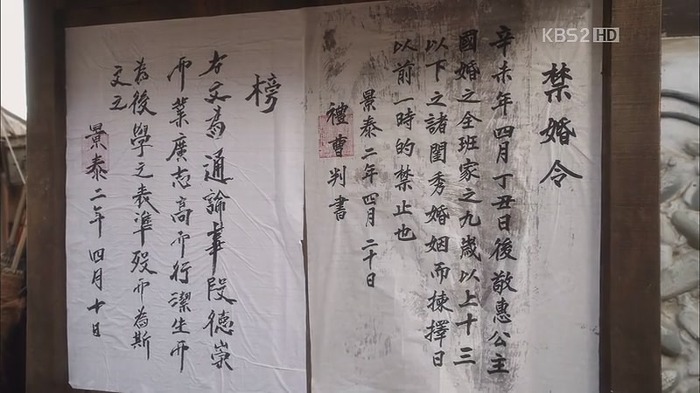 KBS2 HD
禁婚令
辛未年四月丁丑日後敬惠公主
國婚之全班家之九歲以上十三
以下之諸閨秀婚姻而揀擇日
以前一時的禁止也
景泰二年四月二十日
禮曹判書
榜
右文爲通諭事段德崇
而業廣志高而行潔生而
為後學之表準歿而為斯
文之
景泰二年四月十日